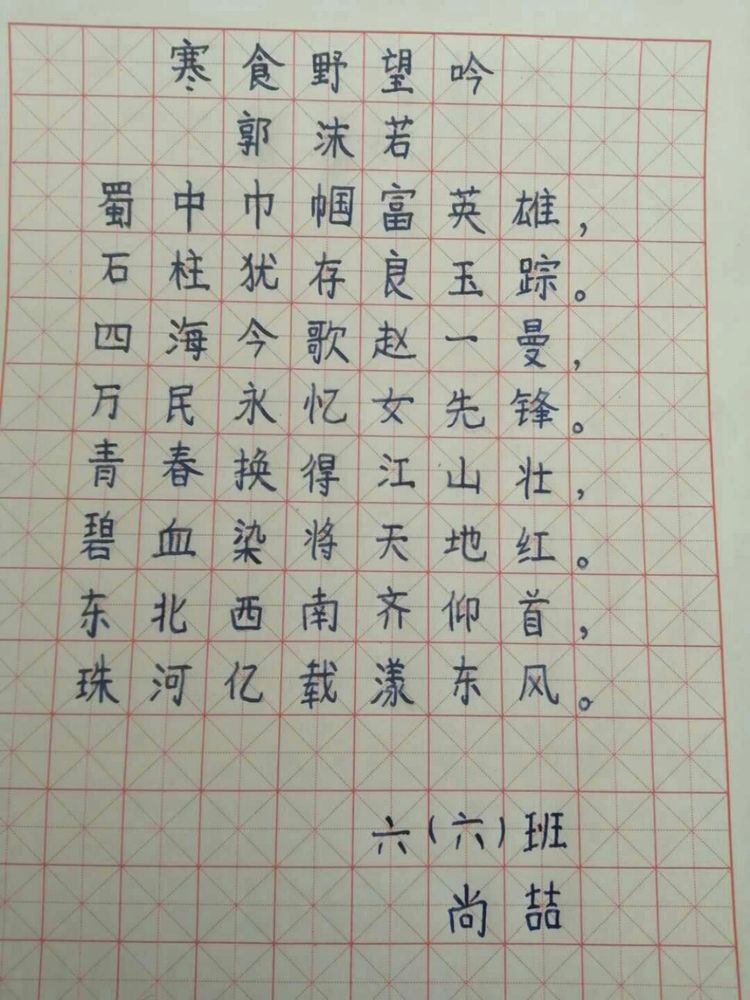 寒食野望吟
郭沫若
蜀中巾帼富英雄，
石柱犹存良玉踪。
四海今歌赵一曼，
万民永忆女先锋。
青春换得江山壮，
碧血染将天地红。
东北西南齐仰首，
珠河亿载漾东风。
六（六）班
尚喆